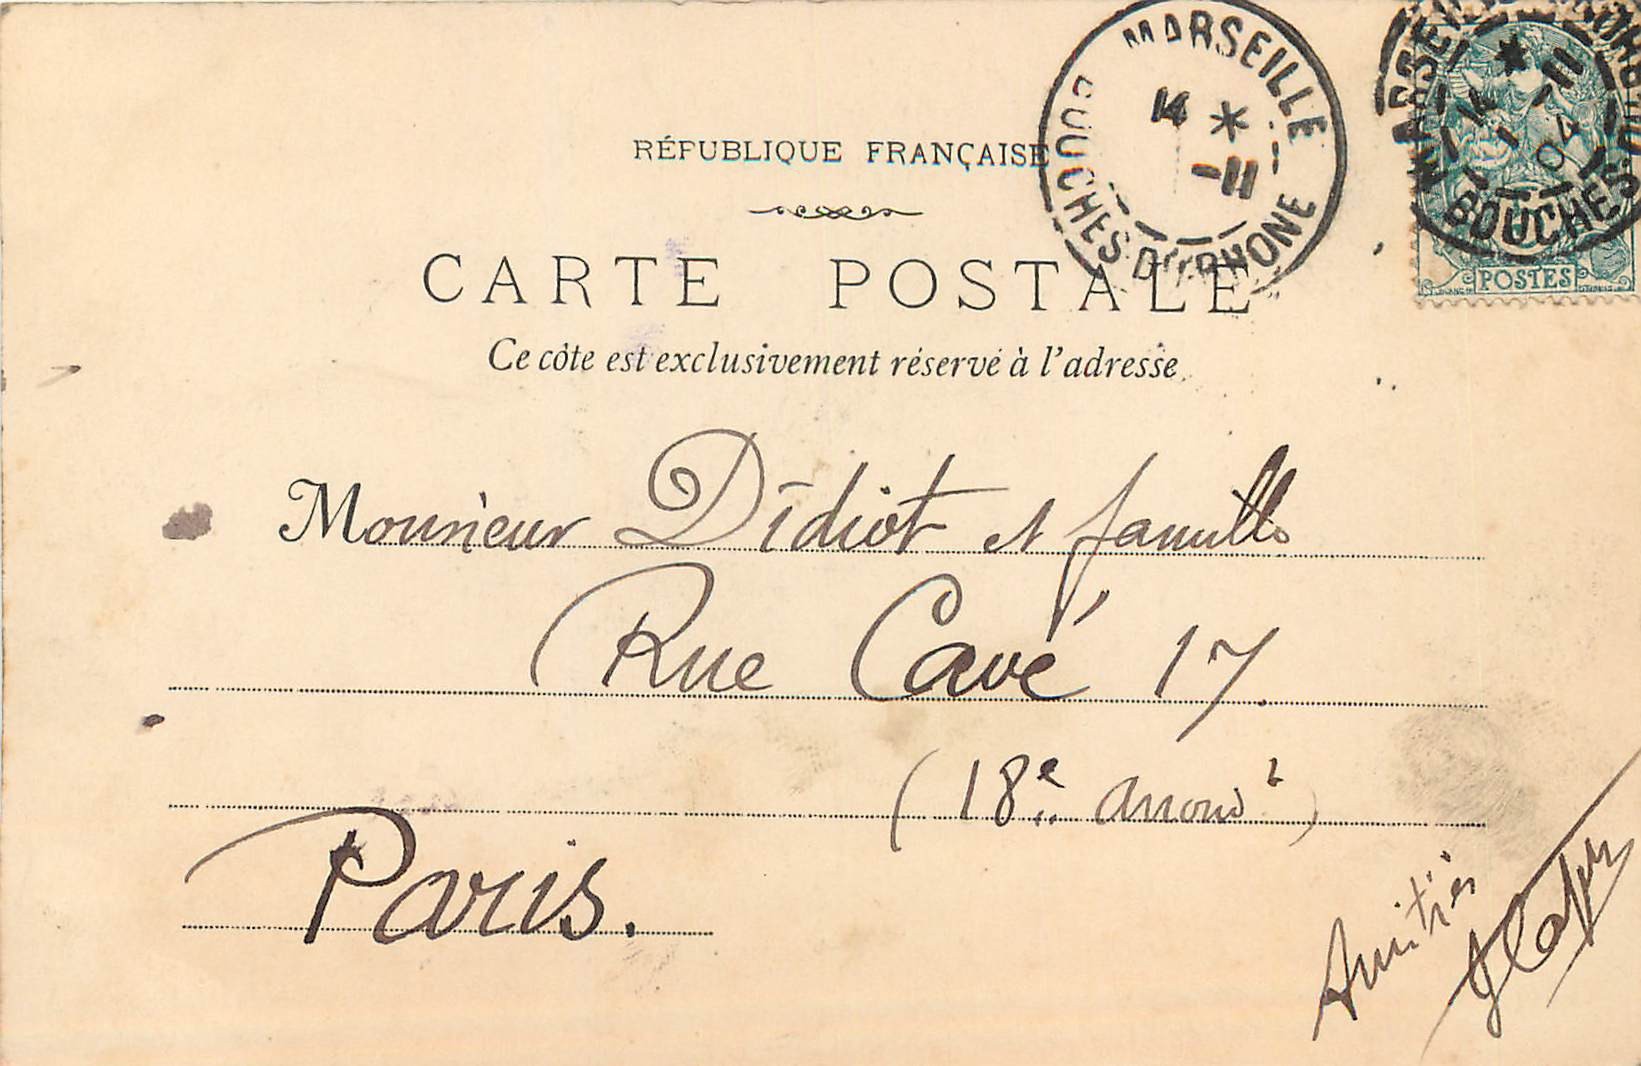 MARSEILLE
14 *
-11
BOUCHES DU RHONE
MARSEILLE
14 *
1 -11
04
BOUCHES
POSTES
RÉPUBLIQUE FRANÇAISE
CARTE POSTALE
Ce côte est exclusivement réservé à l'adresse
Monsieur Didiot et famille
Rue Cavé 17.
(18e arrond t)
Paris.
Amitiés